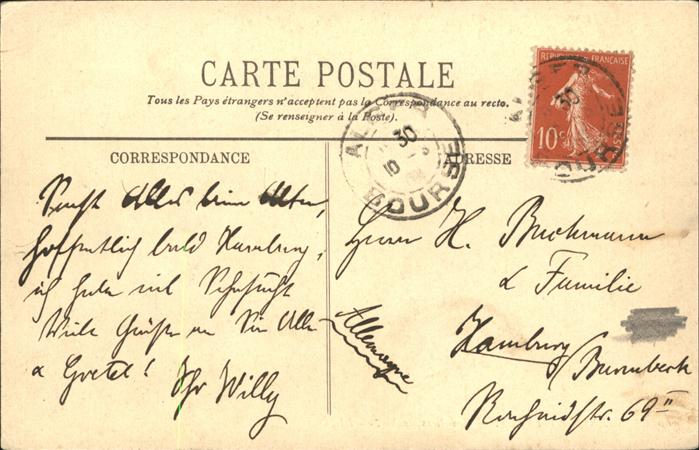 CARTE POSTALE
Tous les Pays étrangers n'acceptent pas la Correspondance au recto.
(Se renseigner à la Poste).
REPUBLIQUE FRANÇAISE
10c
ALGER
30
10
BOURSE
CORRESPONDANCE
ADRESSE
Sonst Alles beim Alten,
hoffentlich bald Hamburg,
ich habe viel Sehnsucht
Viele Grüße an Sie Alle
& Gretel! Ihr Willy
Herrn H. Buchmann
& Familie
Allemagne
Hamburg / Barmbeck
69 II